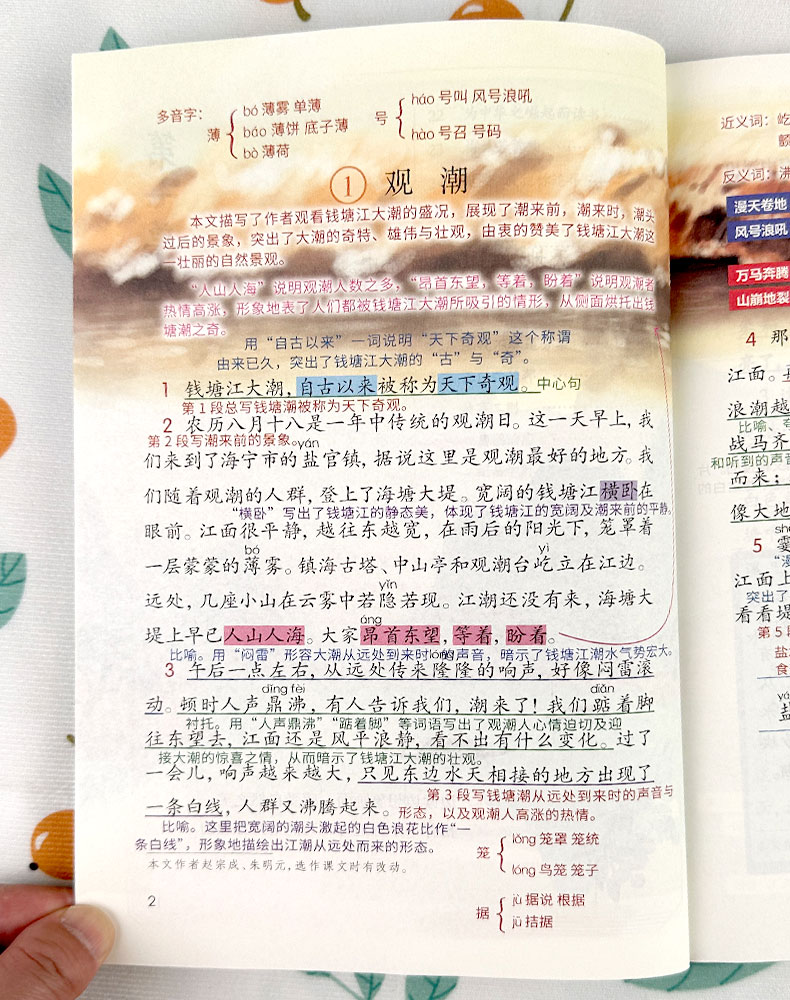 多音字：
薄
bó 薄雾 单薄
báo 薄饼 底子薄
bò 薄荷
号
háo 号叫 风号浪吼
hào 号召 号码
① 观 潮
本文描写了作者观看钱塘江大潮的盛况，展现了潮来前，潮来时，潮头
过后的景象，突出了大潮的奇特、雄伟与壮观，由衷的赞美了钱塘江大潮这
一壮丽的自然景观。
“人山人海”说明观潮人数之多，“昂首东望，等着，盼着”说明观潮者
热情高涨，形象地表了人们都被钱塘江大潮所吸引的情形，从侧面烘托出钱
塘潮之奇。
用“自古以来”一词说明“天下奇观”这个称谓
由来已久，突出了钱塘江大潮的“古”与“奇”。
1 钱塘江大潮，自古以来被称为天下奇观。中心句
第1段总写钱塘潮被称为天下奇观。
2 农历八月十八是一年中传统的观潮日。这一天早上，我
第2段写潮来前的景象。
yán
们来到了海宁市的盐官镇，据说这里是观潮最好的地方。我
们随着观潮的人群，登上了海塘大堤。宽阔的钱塘江横卧在
“横卧”写出了钱塘江的静态美，体现了钱塘江的宽阔及潮来前的平静。
眼前。江面很平静，越往东越宽，在雨后的阳光下，笼罩着
bó yì
一层蒙蒙的薄雾。镇海古塔、中山亭和观潮台屹立在江边。
yǐn
远处，几座小山在云雾中若隐若现。江潮还没有来，海塘大
áng
堤上早已人山人海。大家昂首东望，等着，盼着。
比喻。用“闷雷”形容大潮从远处到来时的声音，暗示了钱塘江潮水气势宏大。
lóng
3 午后一点左右，从远处传来隆隆的响声，好像闷雷滚
dǐng fèi diǎn
动。顿时人声鼎沸，有人告诉我们，潮来了！我们踮着脚
衬托。用“人声鼎沸”“踮着脚”等词语写出了观潮人心情迫切及迎
往东望去，江面还是风平浪静，看不出有什么变化。过了
接大潮的惊喜之情，从而暗示了钱塘江大潮的壮观。
一会儿，响声越来越大，只见东边水天相接的地方出现了
第3段写钱塘潮从远处到来时的声音与
一条白线，人群又沸腾起来。形态，以及观潮人高涨的热情。
比喻。这里把宽阔的潮头激起的白色浪花比作“一
条白线”，形象地描绘出江潮从远处而来的形态。
本文作者赵宗成、朱明元，选作课文时有改动。
笼
lǒng 笼罩 笼统
lóng 鸟笼 笼子
据
jù 据说 根据
jū 拮据
2
近义词：屹
反义词：沸
漫天卷地
风号浪吼
万马奔腾
山崩地裂
4 那
江面。
浪潮越
比喻、
战马齐
和听到的声音
而来；
像大地
5 霎
江面上
突出了
看看堤
第5段
盐
食
盐